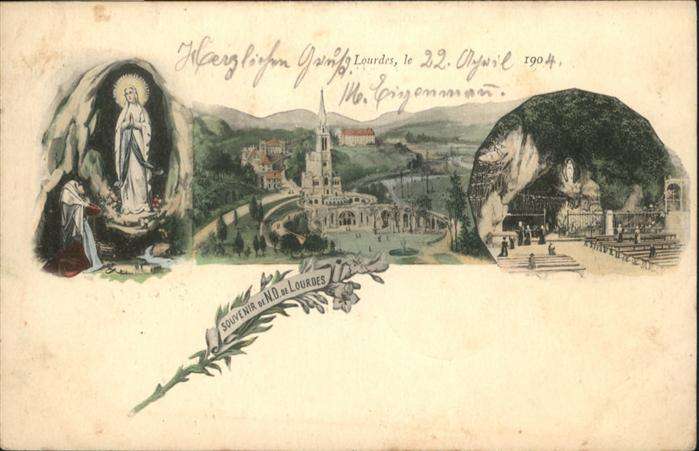 Herzlichen Gruß Lourdes, le 22. April 1904.
M. Eigenmann.
SOUVENIR DE N.D. DE LOURDES